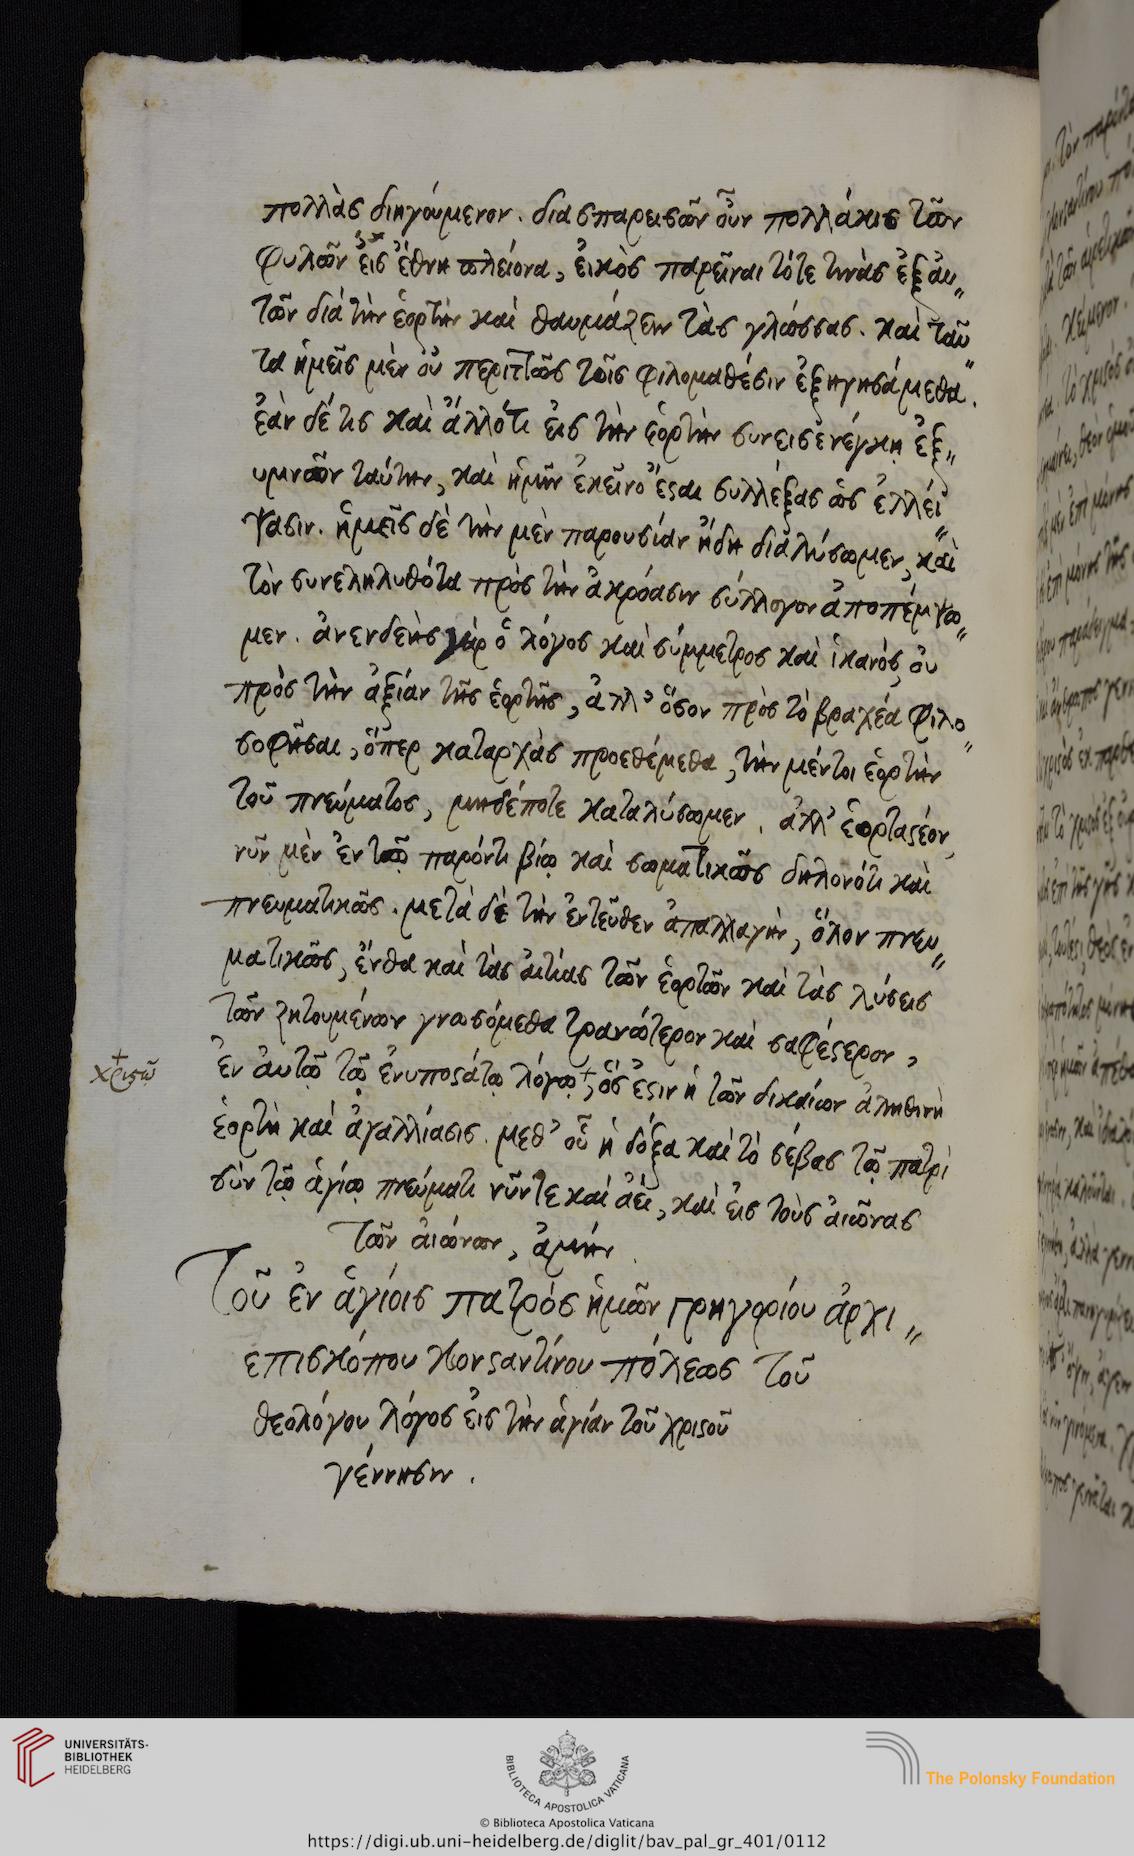 πολλὰς διηγούμενον. διασπαρεισῶν οὖν πολλάκις τῶν
φυλῶν εἰς ἔθνη πλείονα, εἰκὸς παρεῖναι τότε τινὰς ἐξ αυ〃
τῶν διὰ τὴν ἑορτὴν καὶ θαυμάζειν τὰς γλώσσας. καὶ ταῦ〃
τα ἡμεῖς μὲν οὐ περιττῶς τοῖς φιλομαθέσιν ἐξηγησάμεθα.
ἐὰν δέ τις καὶ ἄλλό τι εἰς τὴν ἑορτὴν συνεισενέγκῃ ἐξ〃
υμνῶν ταύτην, καὶ ἡμῖν ἐκεῖνο ἔσται συλλέξας ὡς ἐλλεί〃
ψασιν. ἡμεῖς δὲ τὴν μὲν παρουσίαν ἤδη διαλύσωμεν, καὶ
τὸν συνεληλυθότα πρὸς τὴν ἀκρόασιν σύλλογον ἀποπέμψω〃
μεν. ἀνενδεὴς γὰρ ὁ λόγος καὶ σύμμετρος καὶ ἱκανός, οὐ
πρὸς τὴν ἀξίαν τῆς ἑορτῆς, ἀλλ' ὅσον πρὸς τὸ βραχέα φιλο〃
σοφῆσαι, ὅπερ καταρχὰς προεθέμεθα, τὴν μέντοι ἑορτὴν
τοῦ πνεύματος, μηδέποτε καταλύσωμεν. ἀλλ' ἑορταστέον,
νῦν μὲν ἐν τῷ παρόντι βίῳ καὶ σωματικῶς δηλονότι καὶ
πνευματικῶς. μετὰ δὲ τὴν ἐντεῦθεν ἀπαλλαγὴν, ὅλον πνευ〃
ματικῶς, ἔνθα καὶ τὰς αἰτίας τῶν ἑορτῶν καὶ τὰς λύσεις
τῶν ζητουμένων γνωσόμεθα τρανώτερον καὶ σαφέστερον,
ἐν αὐτῷ τῷ ἐνυποστάτῳ λόγῳ+, ὅς ἐστιν ἡ τῶν δικαίων ἀληθινὴ
+ χριστῶ
ἑορτὴ καὶ ἀγαλλίασις. μεθ' οὗ ἡ δόξα καὶ τὸ σέβας τῷ πατρὶ
σὺν τῷ ἁγίῳ πνεύματι νῦν τε καὶ ἀεὶ, καὶ εἰς τοὺς αἰῶνας
τῶν αἰώνων, ἀμήν.
Τοῦ ἐν ἁγίοις πατρὸς ἡμῶν γρηγορίου ἀρχι〃
επισκόπου κονσταντίνου πόλεως τοῦ
θεολόγου λόγος εἰς τὴν ἁγίαν τοῦ χριστοῦ
γέννησιν.
UNIVERSITÄTS-
BIBLIOTHEK
HEIDELBERG
BIBLIOTECA APOSTOLICA VATICANA
The Polonsky Foundation
© Biblioteca Apostolica Vaticana
https://digi.ub.uni-heidelberg.de/diglit/bav_pal_gr_401/0112